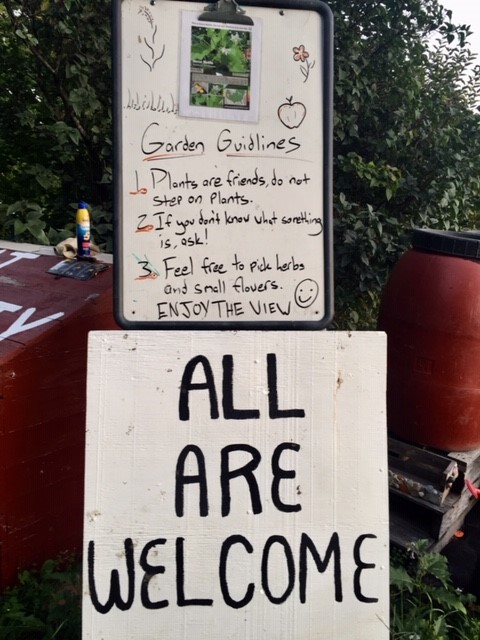 Garden Guidlines
1. Plants are friends, do not
step on plants.
2. If you don't know what something
is, ask!
3. Feel free to pick herbs
and small flowers.
ENJOY THE VIEW
ALL
ARE
WELCOME